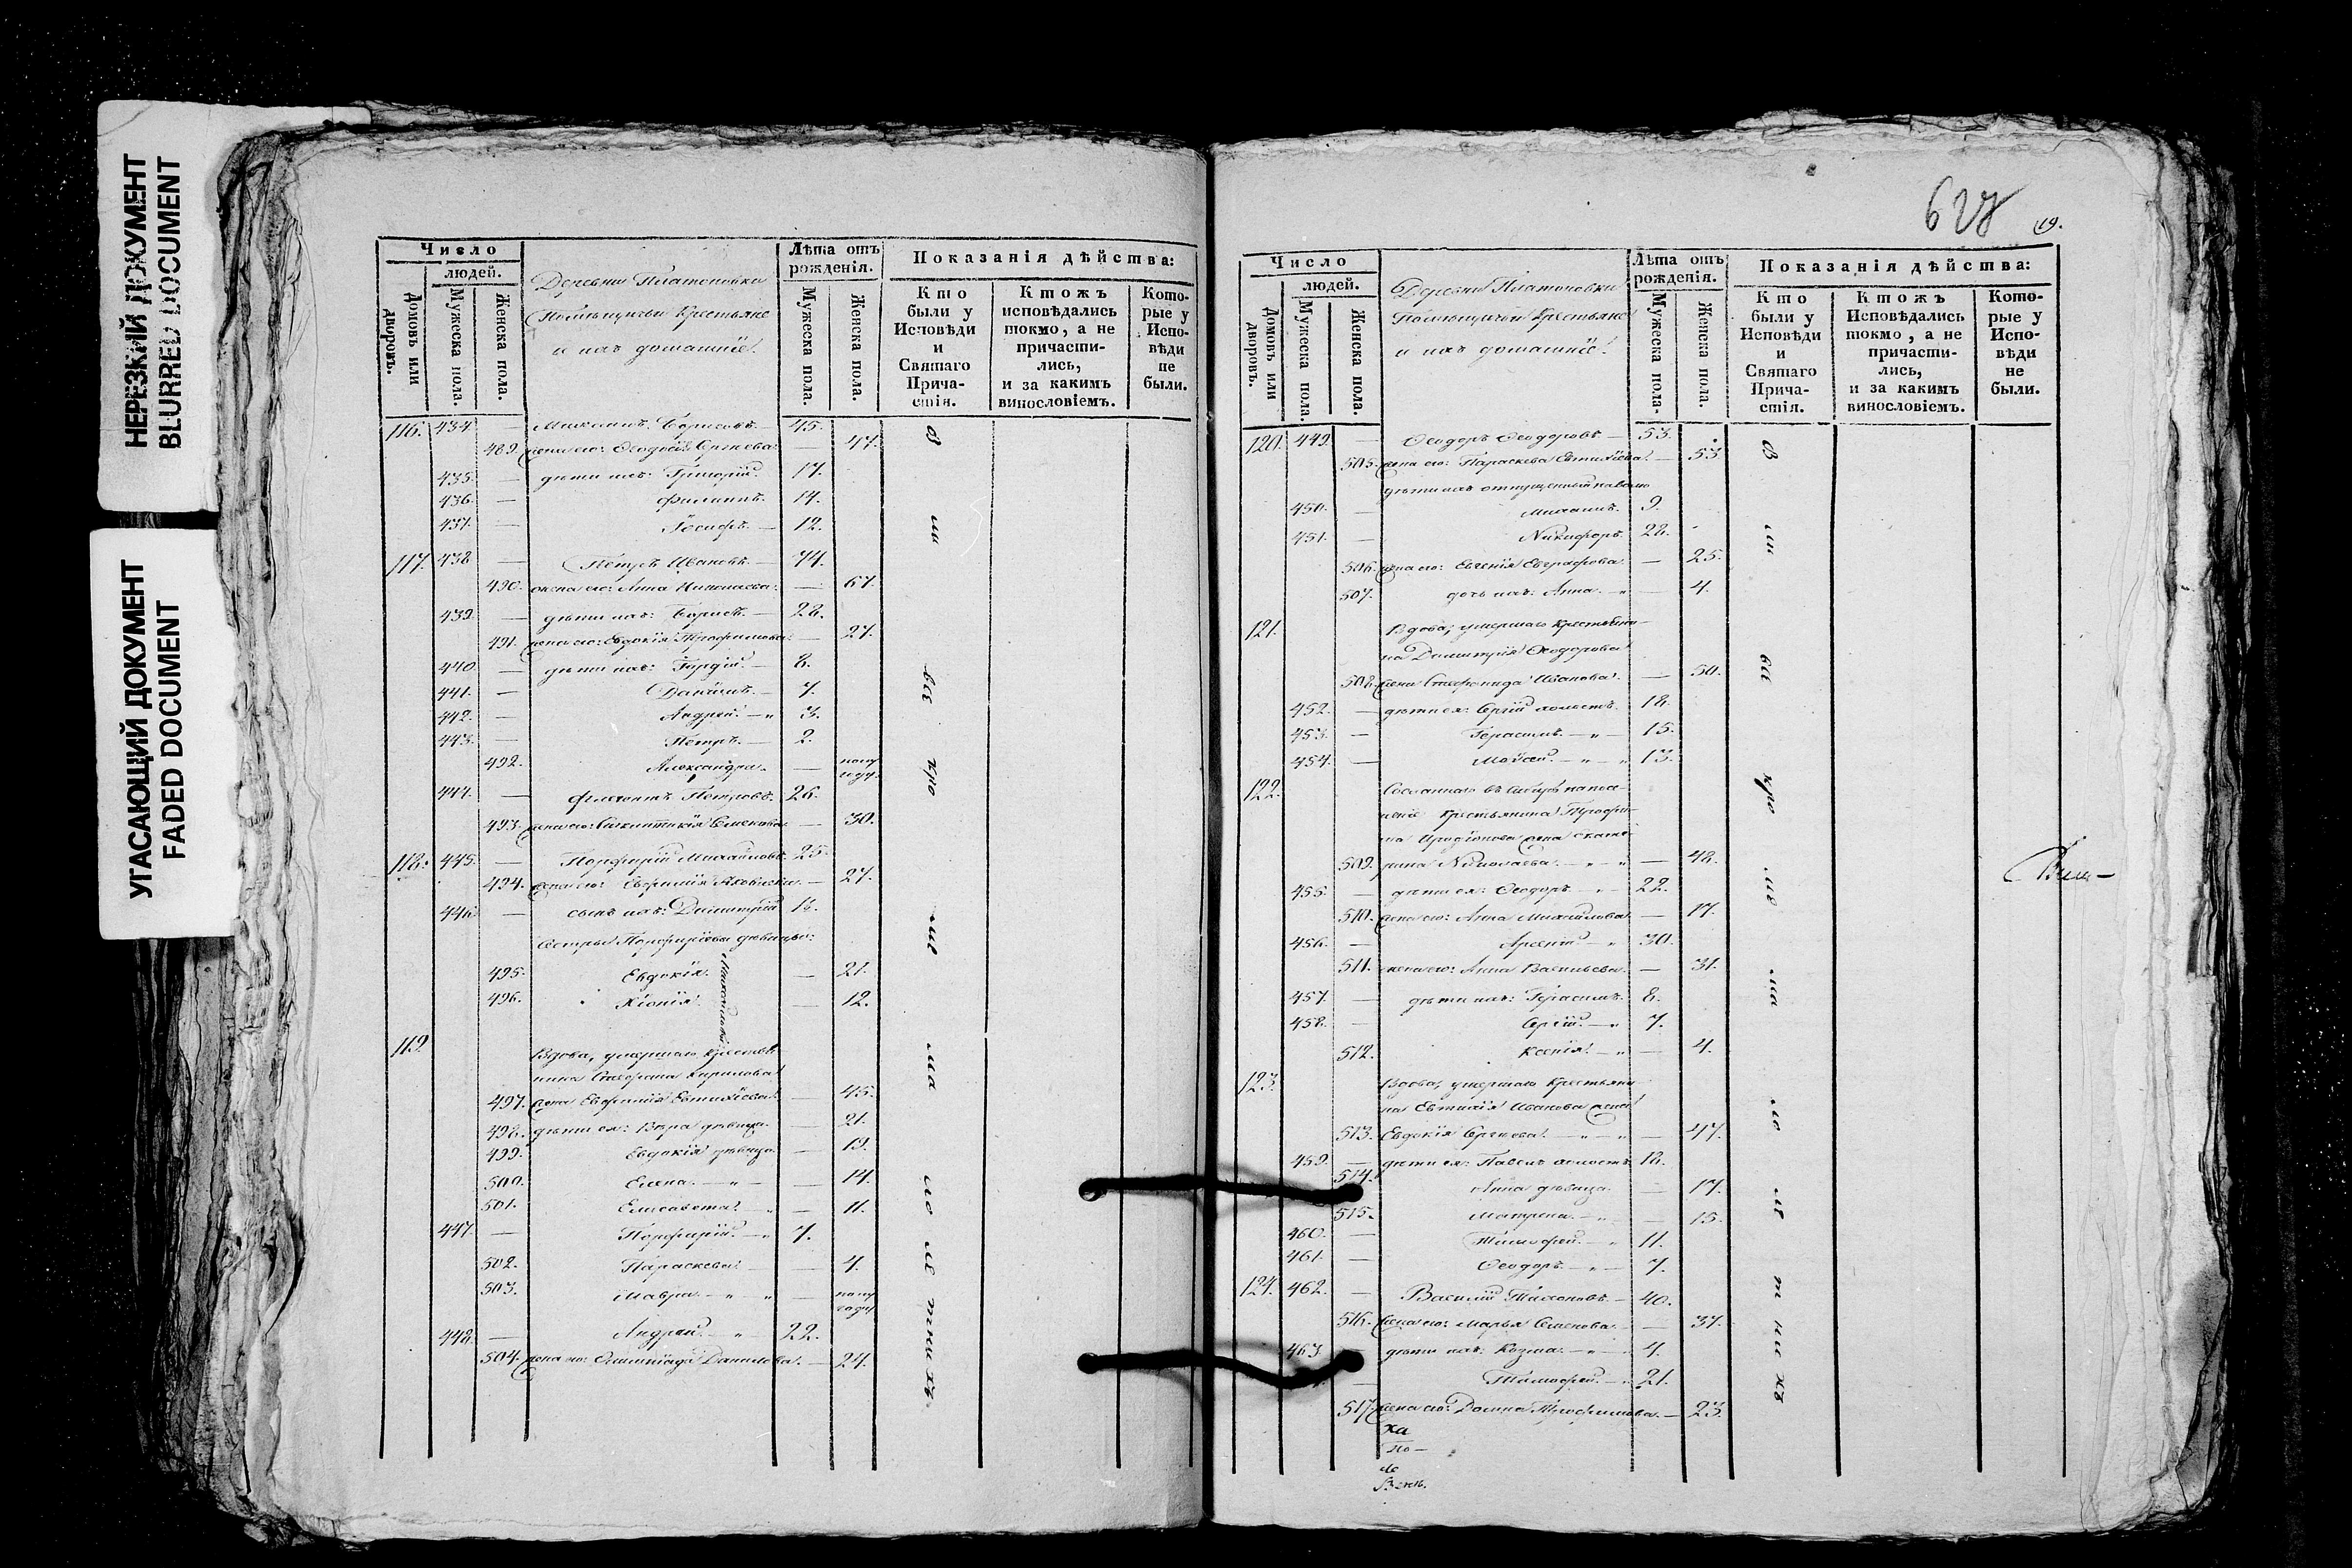 НЕРЕЗКИЙ ДОКУМЕНТ
BLURRED DOCUMENT
УГАСАЮЩИЙ ДОКУМЕНТ
FADED DOCUMENT
Число
людей.
Домовъ или дворовъ.
Мужеска пола.
Женска пола.
Деревни Платоновки
Помѣщичьи крестьяне
и ихъ домашніе.
Лѣта отъ рожденія.
Мужеска пола.
Женска пола.
Показанія дѣйства:
Кто были у Исповѣди и Святаго Причастія.
Ктожъ исповѣдались токмо, а не причастились, и за какимъ винословіемъ.
Которые у Исповѣди не были.
116. 434. — Борисовъ. — 45.
489. жена его: Феодосія Сергеева. — 47.
435. — дѣти ихъ: Григорій. 17.
436. — Филиппъ. 14.
437. — Іосифъ. — 12.
117. 438 — Петръ Ивановъ. — 74.
490. жена его: Анна Николаева. — 67.
439. — дѣти ихъ: Борисъ. — 28.
491. жена его: Евдокія Трофимова. — 27.
440. — дѣти ихъ: Гордій. — 8.
441. — Даніилъ. — 7.
442. — Андрей. — „ 3.
443. — Петръ. — 2.
492. Александра. — полу году.
444. — Петровъ. 26.
493. жена его: Семенова. — 30.
118. 445. — Порфирій Михайловъ. 25.
494. жена его: Евфимія Яковлева. — 27.
446. — сынъ ихъ: Димитрій
Сестры Порфиріевы дѣвицы:
495. Евдокія. — 21.
496. Хіонія. — 12.
Михайловы
119. Вдова, умершаго крестья-
нина Стефана Кирилова
497. жена Евфимія Евтихіева. — 45.
498. дѣти ея: Вѣра дѣвица. — 21.
499. Евдокія дѣвица. — 19.
500. Елена. — „ — 14.
501. Елисавета. — „ — 11.
447. — Порфирій. — „ 7.
502. Параскева. — 4.
503. Мавра. — „ — „ — полу году
448. — Андрей. — „ 22.
504. жена его: Олимпіада Данилова. — 24.
628 19.
Число
людей.
Домовъ или дворовъ.
Мужеска пола.
Женска пола.
Деревни Платоновки
Помѣщичьи крестьяне
и ихъ домашніе.
Лѣта отъ рожденія.
Мужеска пола.
Женска пола.
Показанія дѣйства:
Кто были у Исповѣди и Святаго Причастія.
Ктожъ Исповѣдались токмо, а не причастились, и за какимъ винословіемъ.
Которые у Исповѣди не были.
120. 449. — Феодоръ Феодоровъ. — 53.
505. жена его: Параскева Евтихіева. — 53.
дѣти ихъ отпущенный на волю
450. — Михаилъ. 9.
451. — Никифоръ. 28.
506. жена его: Евгенія Евграфова. — 25.
507. дочь ихъ: Анна. — „ — 4.
121. Вдова, умершаго крестьяни-
на Димитрія Феодорова
508. жена Стефанида Иванова. — 50.
452. — дѣти ея: Сергій холостъ. 18.
453. — Герасимъ. — „ — 15.
454. — Моѵсей. — „ — „ 13.
122. Сосланнаго въ Сибирь на посе-
леніе крестьянина Трофи-
ма Иродіонова жена Екате-
509. рина Николаева. — „ — „ — 48.
455. — дѣти ея: Феодоръ. — „ — 22.
510. жена его: Анна Михайлова. — 17.
456. — Арсеній — „ 30.
511. жена его: Анна Васильева. — 31.
457. — дѣти ихъ: Герасимъ. 8.
458. — Сергій. — „ 7.
512. Ксенія. — „ — 4.
123. Вдова, умершаго крестьяни-
на Евтихія Иванова жена
513. Евдокія Сергеева. — „ — „ — 47.
459. — дѣти ея: Павелъ холостъ. 18.
514. Анна дѣвица. — 17.
515. Матрена. — „ — 15.
460. — Тимофей. — „ 11.
461. — Феодоръ. — „ — 7.
124. 462. — Василій Тихоновъ. — 40.
516. жена его: Марья Семенова. — 37.
463. — дѣти ихъ: Козма. — „ — 4.
— Тимофей. — „ 21.
517. жена его: Домна Трофимова. — 23.